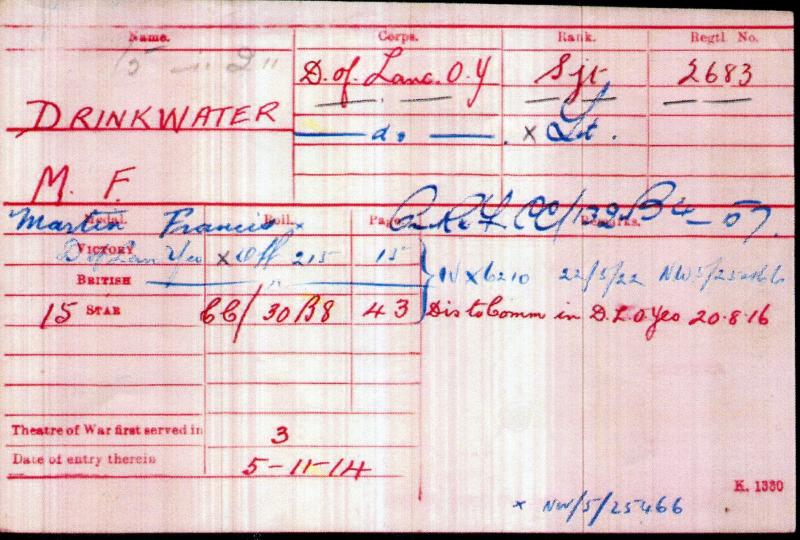 Name. Corps. Rank. Regtl. No.
15 — "2"
D. of. Lanc. O. Y Sjt 2683
DRINKWATER
— do — . × Lt.
M. F.
Martin Francis × CC/132B4_57.
Medal. Roll. Page. Remarks.
VICTORY D of Lan Yeo × Off 215 15
BRITISH — " — IV × 6210 22/5/22 NW5/25466
15 STAR CC/30B8 43 Dis to Comm in D.L.O.Yeo 20.8.16
Theatre of War first served in 3
Date of entry therein 5-11-14
K. 1380
× NW/5/25466